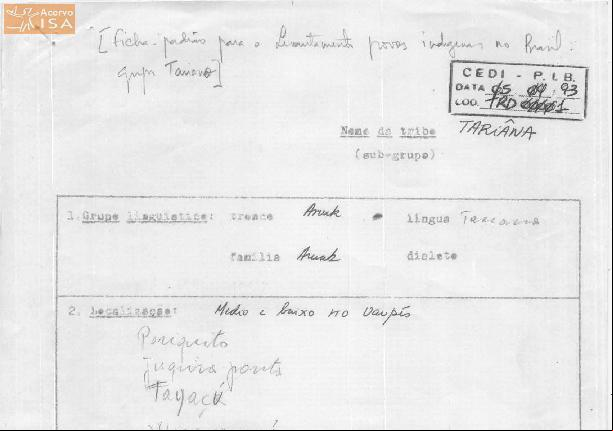 Acervo
ISA
[Ficha-padrão para o Levantamento povos indígenas no Brasil:
grupo Tariano]
CEDI - P.I.B.
DATA 05 04 93
COD. TRD 00001
Nome da tribo TARIÂNA
(sub-grupo)
1. Grupo linguístico: tronco Aruak lingua
família Aruak dialeto
2. Localização: Médio e baixo rio Vaupés
Periquito
juquira ponta
Tayaçú